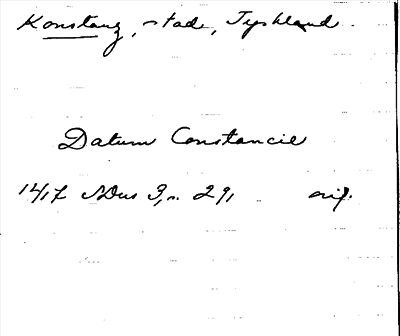 Konstanz, stad, Tyskland.
Datum Constancie
1417 SDns 3, n. 291 orig.